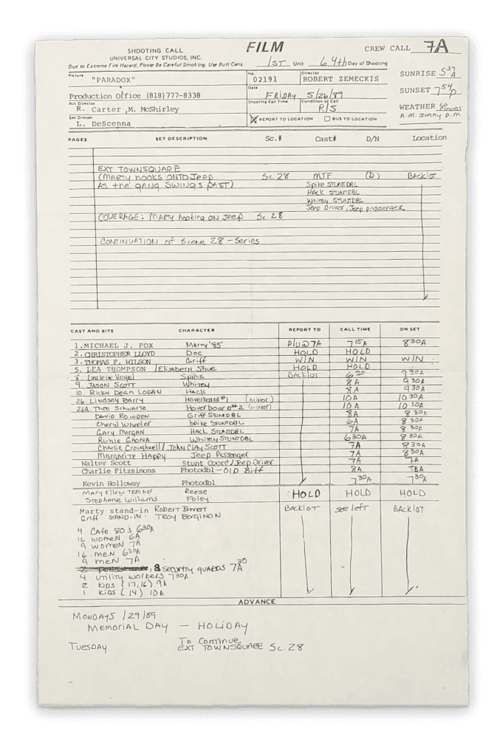 SHOOTING CALL FILM CREW CALL 7A
UNIVERSAL CITY STUDIOS, INC.
Due to Extreme Fire Hazard, Please Be Careful Smoking. Use Butt Cans 1ST Unit 64th Day of Shooting
Picture "PARADOX" No. 02191 Director ROBERT ZEMECKIS SUNRISE 5 A
Production Office (818)777-8338 Date FRIDAY 5/26/89 SUNSET 7 54 P
Art Director R. Carter, M. McShirley Shooting Call Time Condition of Call R/S WEATHER
Set Dresser L. DeScenna X REPORT TO LOCATION BUS TO LOCATION A.M. sunny p.m
PAGES SET DESCRIPTION Sc.# Cast# D/N Location
EXT TOWNSQUARE
(MARTY HOOKS ONTO JEEP Sc. 28 MJF (D) BACKLOT
AS THE GANG SWINGS PAST) Spike STUNTDBL
HACK STUNTDBL
Whitey STUNTDBL
Jeep Driver, Jeep passenger
COVERAGE: MARTY hooking on Jeep Sc 28
CONTINUATION of Scene 28 - Series
CAST AND BITS CHARACTER REPORT TO CALL TIME ON SET
1. MICHAEL J. FOX Marty '85 P/U @ 7A 7 15A 8 30A
2. CHRISTOPHER LLOYD Doc HOLD HOLD
3. THOMAS F. WILSON Griff W/N W/N W/N
5. LEA THOMPSON / Elizabeth Shue HOLD HOLD
8. Darlene Vogel Spike BACKLOT 6 30 9 30A
9. JASON SCOTT Whitey 8A 9 30A
10. Ricky Dean LOGAN Hack 8A 9 30A
26 Lindsey Barry Hoverboard #1 (minor) 10A 10 30A
26A Theo Schwartz Hoverboard #2 (minor) 10A 10 30A
David Rowden Griff STUNTDBL 8A 8 30A
Cheryl Wheeler Spike STUNTDBL 6A 8 30A
Gary Morgan HACK STUNTDBL 7A 8 30A
Richie GAONA WHITEY STUNTDBL 6 30A 8 30A
Charlie Croughwell / John Clay SCOTT 7A 8 30A
MARGARITE HAPPY Jeep Passenger 7A 8 30A
Walter Scott Stunt Coord/Jeep Driver 7A 7A
Charlie Fitzsimons Photodbl - OLD Biff 8A TBA
Kevin Holloway Photodbl 7 30A 7 30A
MARY Ellen TRAINOR Reese HOLD HOLD HOLD
Stephanie Williams Foley
Marty stand-in Robert Bennett BACKLOT see left BACKLOT
Griff STAND-IN: TROY BORGINON
4 Cafe 80's 6 30A
16 WOMEN 6A
9 WOMEN 7A
16 MEN 6 30A
9 MEN 7A
2 SECURITY GUARDS 7A 30
4 UTILITY WORKERS 7 30A
2 KIDS (17,16) 9A
1 KIDS (14) 10A
ADVANCE
MONDAYS / 29/89
MEMORIAL DAY - HOLIDAY
To Continue
TUESDAY EXT TOWNSQUARE Sc. 28